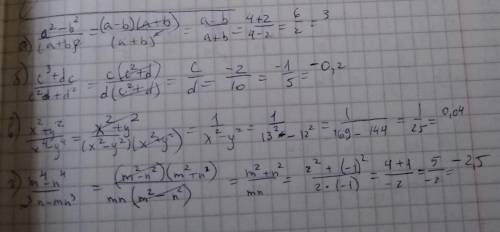 а) a²-b² / (a+b)² = (a-b)(a+b) / (a+b)² = a-b / a+b = 4+2 / 4-2 = 6 / 2 = 3
б) c³+dc / c²d+d² = c(c²+d) / d(c²+d) = c / d = -2 / 10 = -1 / 5 = -0,2
в) x²+y² / x⁴-y⁴ = x²+y² / (x²-y²)(x²-y²) = 1 / x²-y² = 1 / 13²-12² = 1 / 169-144 = 1 / 25 = 0,04
г) m⁴-n⁴ / ³n-mn³ = (m²-n²)(m²+n²) / mn(m²-n²) = m²+n² / mn = 2²+(-1)² / 2·(-1) = 4+1 / -2 = 5 / -2 = -2,5